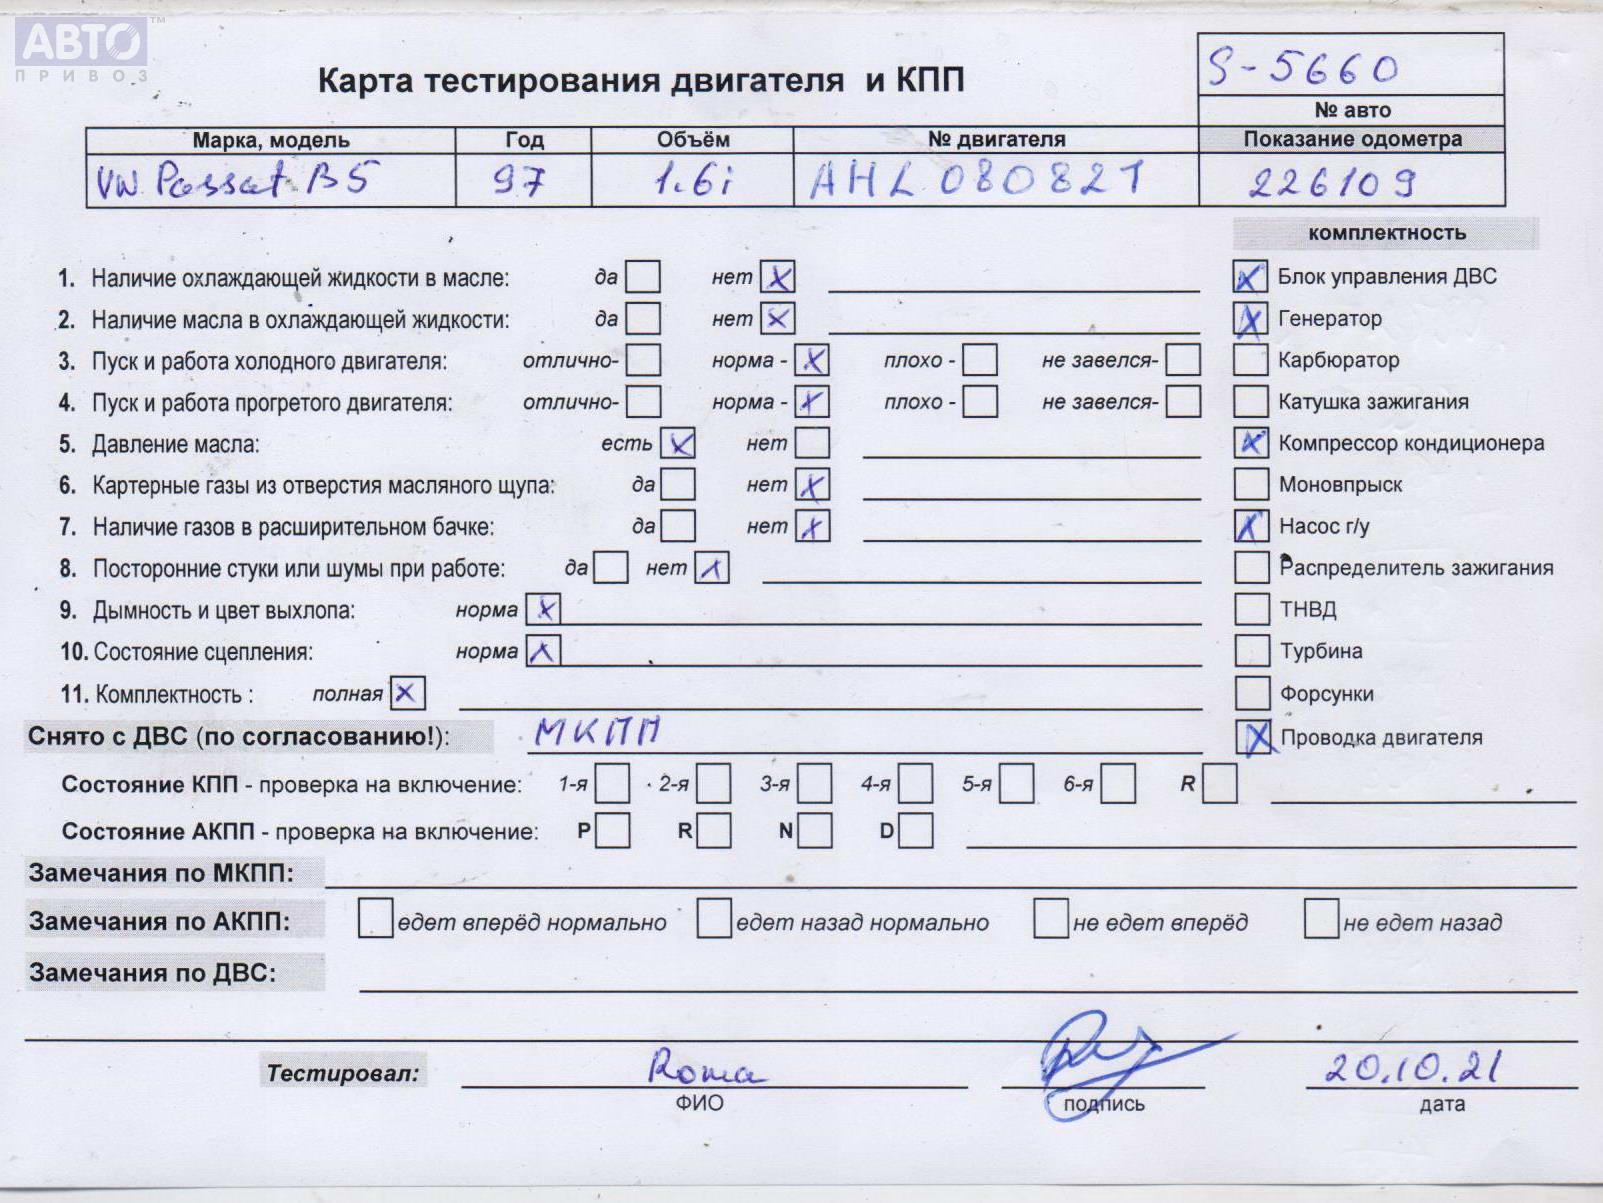 АВТО™
ПРИВОЗ
Карта тестирования двигателя и КПП
S-5660
№ авто
Марка, модель Год Объём № двигателя Показание одометра
VW Passat B5 97 1.6i AHL 080821 226109
комплектность
1. Наличие охлаждающей жидкости в масле: да нет X Блок управления ДВС X
2. Наличие масла в охлаждающей жидкости: да нет X Генератор X
3. Пуск и работа холодного двигателя: отлично- норма - X плохо - не завелся- Карбюратор
4. Пуск и работа прогретого двигателя: отлично- норма - X плохо - не завелся- Катушка зажигания
5. Давление масла: есть X нет Компрессор кондиционера X
6. Картерные газы из отверстия масляного щупа: да нет X Моновпрыск
7. Наличие газов в расширительном бачке: да нет X Насос г/у X
8. Посторонние стуки или шумы при работе: да нет X Распределитель зажигания
9. Дымность и цвет выхлопа: норма X ТНВД
10. Состояние сцепления: норма X Турбина
11. Комплектность : полная X Форсунки
Снято с ДВС (по согласованию!): МКПП Проводка двигателя X
Состояние КПП - проверка на включение: 1-я 2-я 3-я 4-я 5-я 6-я R
Состояние АКПП - проверка на включение: P R N D
Замечания по МКПП:
Замечания по АКПП: едет вперёд нормально едет назад нормально не едет вперёд не едет назад
Замечания по ДВС:
Тестировал: Roma 20.10.21
ФИО подпись дата